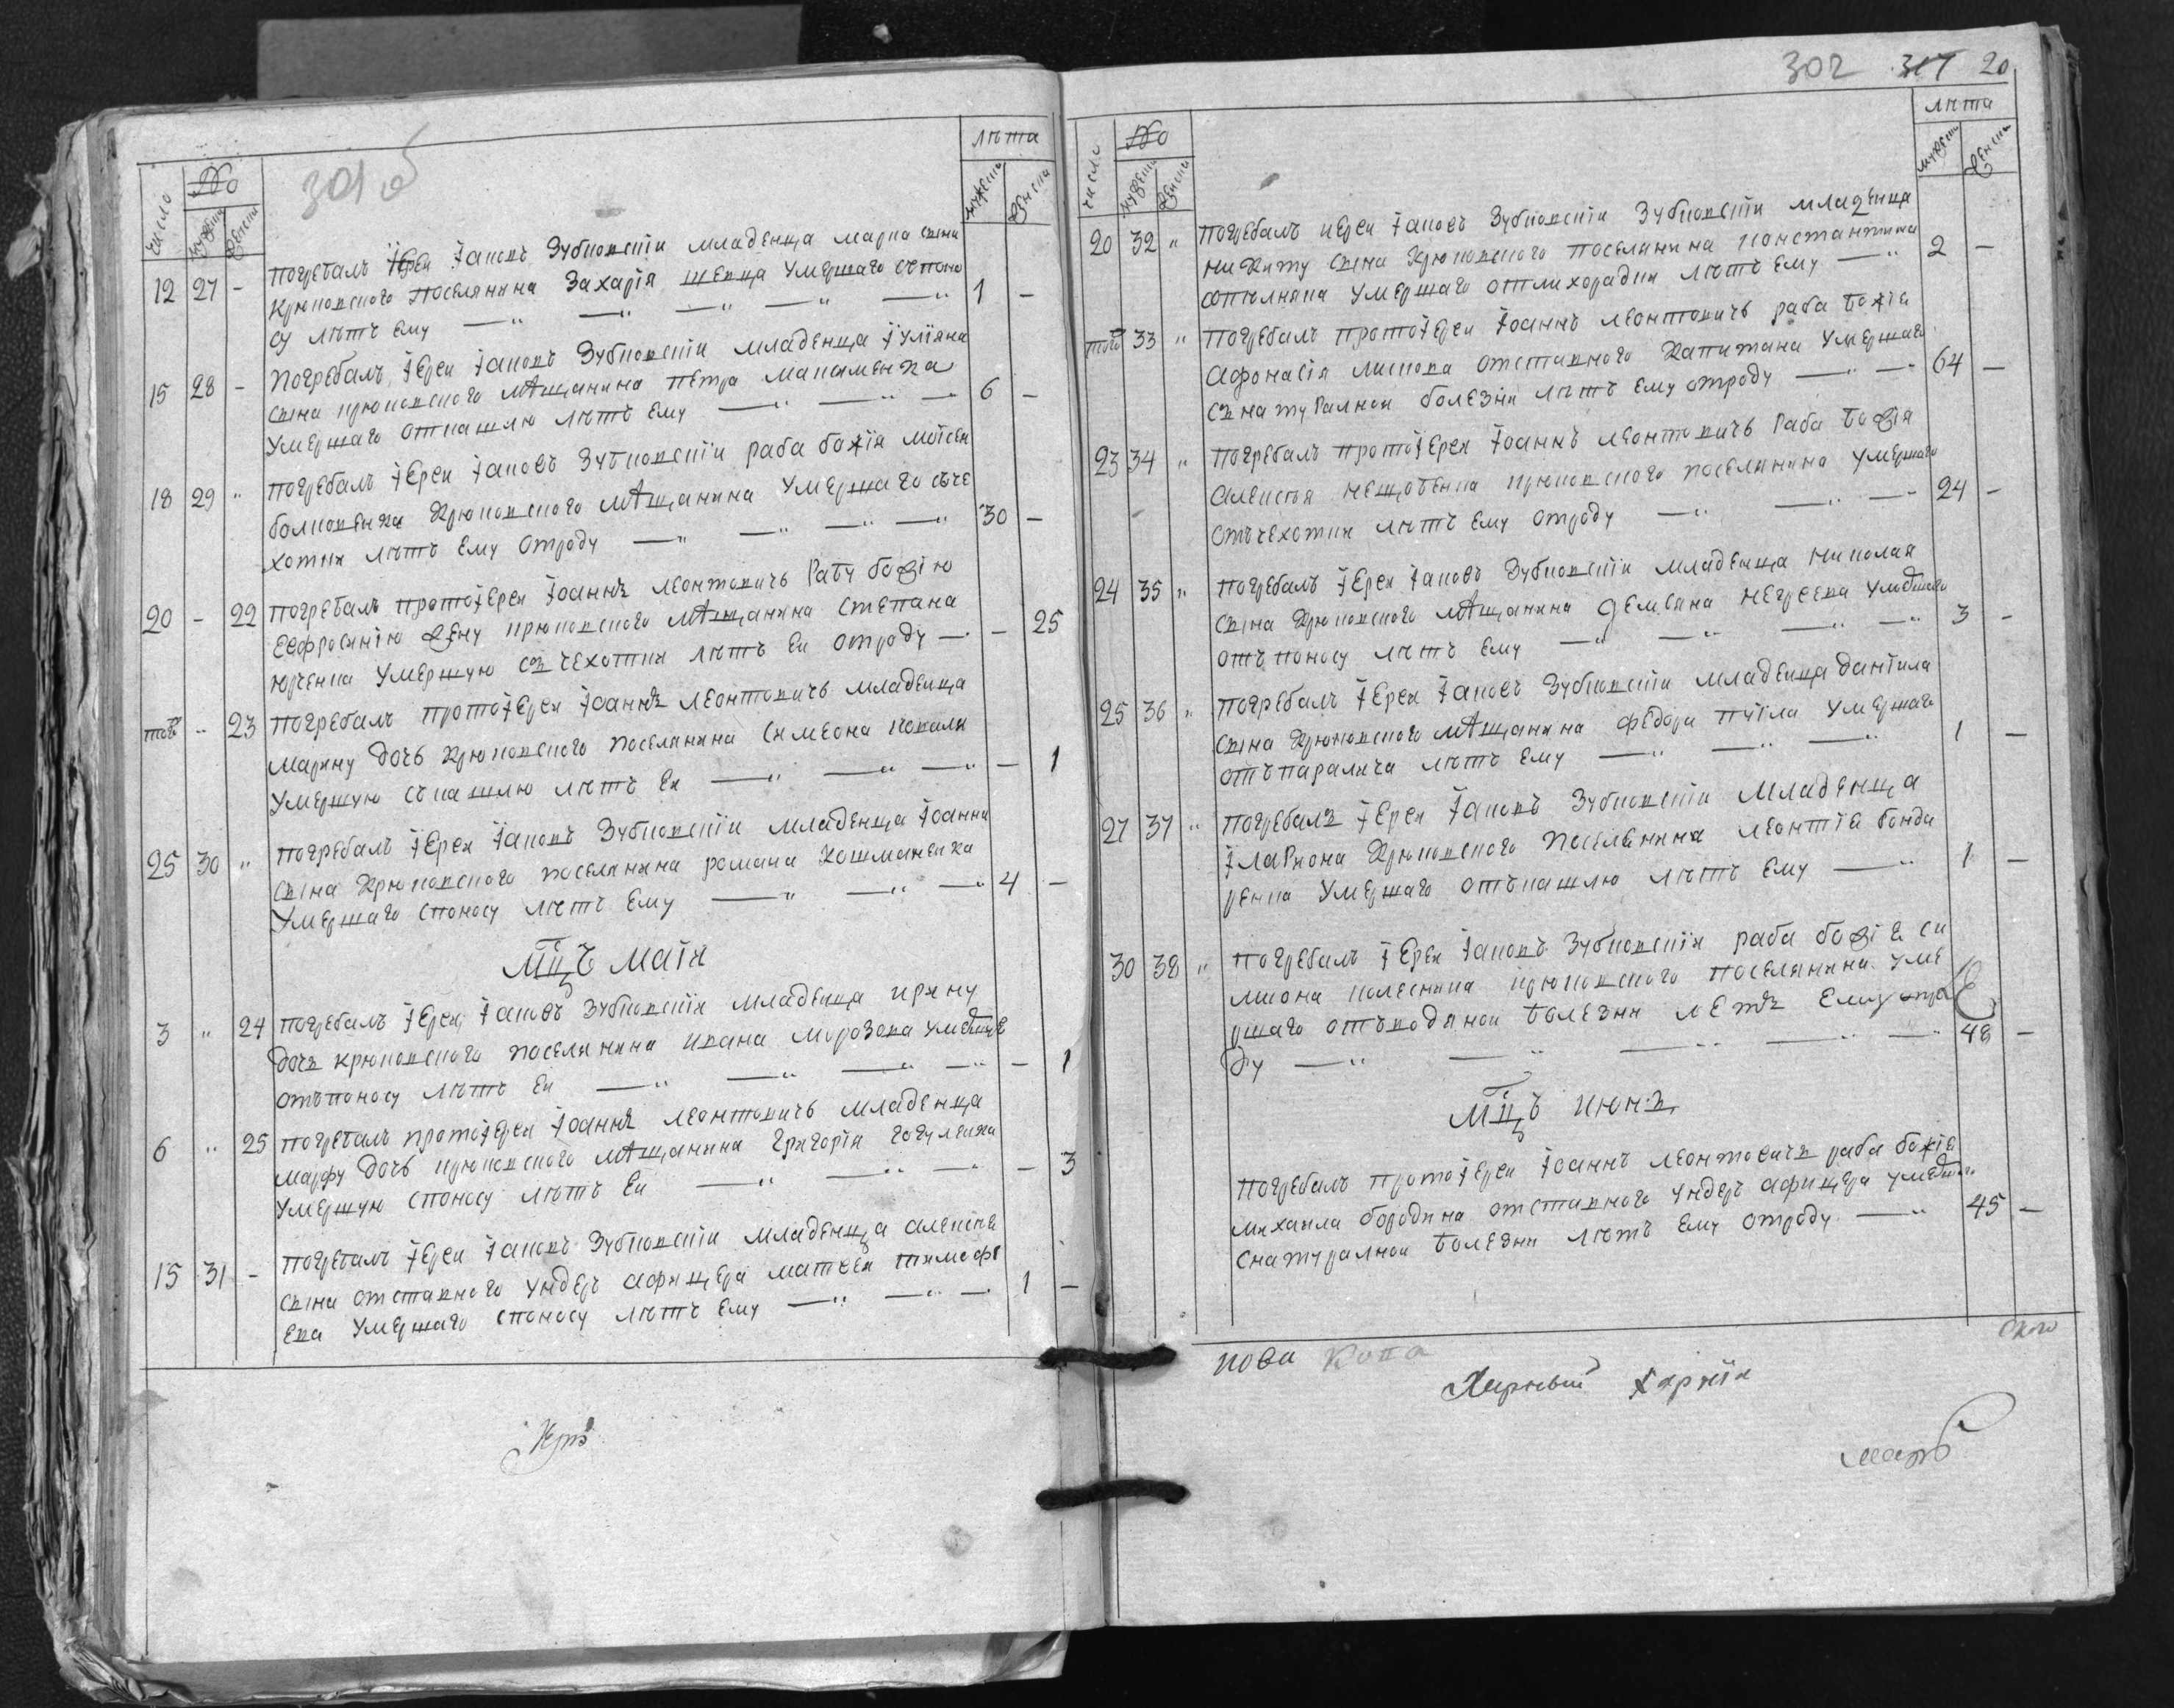 301 об
число № мужеска женска лѣта мужеска женска
12 27 - Погребалъ Іерей Іаковъ Зубковскій младенца Марка сына
крюковского поселянина Захарія шевца умершаго съ поно
су лѣтъ ему — — — — 1 -
15 28 - Погребалъ Іерей Іаковъ Зубковскій младенца Іуліяна
сына крюковского мѣщанина Петра
умершаго откашлю лѣтъ ему — — — 6 -
18 29 " Погребалъ Іерей Іаковъ Зубковскій раба божія Моісея
крюковского мѣщанина умершаго съ че
хотки лѣтъ ему отроду — — — — 30 -
20 - 22 Погребалъ протоіерей Іоаннъ Леонтовичъ рабу божію
Еефросинію жену крюковского мѣщанина Степана
Юрченка умершую съ чехотки лѣтъ ей отроду — - 25
того " 23 Погребалъ протоіерей Іоаннъ Леонтовичъ младенца
Марину дочь крюковского поселянина Симеона Коваля
умершую съ кашлю лѣтъ ей — — — - 1
25 30 " Погребалъ Іерей Іаковъ Зубковскій младенца Іоанна
сына крюковского поселянина Романа Кошманенка
умершаго споносу лѣтъ ему — — — 4 -
Мцъ Маія
3 " 24 Погребалъ Іерей Іаковъ Зубковскій младенца Ирину
дочь крюковского поселянина Ивана Морозова умершую
отъ поносу лѣтъ ей — — — — - 1
6 " 25 Погребалъ протоіерей Іоаннъ Леонтовичъ младенца
Марфу дочь крюковского мѣщанина Григорія
умершую споносу лѣтъ ей — — — - 3
15 31 - Погребалъ Іерей Іаковъ Зубковскій младенца Алексіея
сына отставного ундеръ афицера Матвея Тимофе
ева умершаго споносу лѣтъ ему — — — 1 -
302 317 20
число № мужеска женска лѣта мужеска женска
20 32 " Погребалъ иерей Іаковъ Зубковскій Зубковскій младенца
Никиту сына крюковского поселянина Константина
умершаго отлихорадки лѣтъ ему — 2 -
того 33 " Погребалъ протоіерей Іоаннъ Леонтовичъ раба божія
Афонасія отставного капитана умершаго
снатуралной болезни лѣтъ ему отроду — — 64 -
23 34 " Погребалъ протоіерей Іоаннъ Леонтовичъ раба божія
крюковского поселянина умершаго
отъ чехотки лѣтъ ему отроду — — — 24 -
24 35 " Погребалъ Іерей Іаковъ Зубковскій младенца Николая
сына крюковского мѣщанина Демеяна Негреева умершаго
отъ поносу лѣтъ ему — — — — 3 -
25 36 " Погребалъ Іерей Іаковъ Зубковскій младенца Даніила
сына крюковского мѣщанина Федора умершаго
отъ паралича лѣтъ ему — — — 1 -
27 37 " Погребалъ Іерей Іаковъ Зубковскій младенца
Ілариона крюковского поселянина Леонтія Бонда
ренка умершаго отъ кашлю лѣтъ ему — 1 -
30 38 " Погребалъ Іерей Іаковъ Зубковскій раба божіе Си
миона Колесника крюковского поселянина уме
ршаго отъ водяной болезни летъ ему отро
ду — — — — — 48 -
Мцъ Июнь
Погребалъ протоіерей Іоаннъ Леонтовичъ раба божіе
Михаила Бородина отставного ундеръ афицера умершаго
снатуралной болезни лѣтъ ему отроду — 45 -